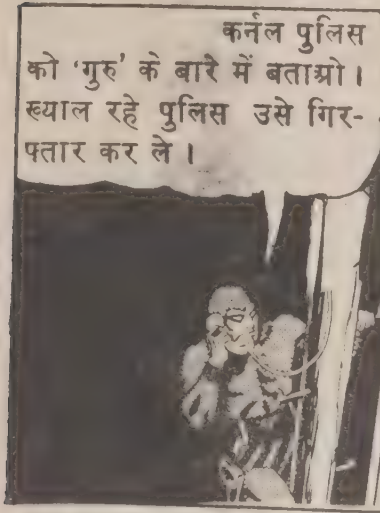 कर्नल पुलिस
को 'गुरु' के बारे में बताओ।
ख्याल रहे पुलिस उसे गिर-
फ्तार कर ले।